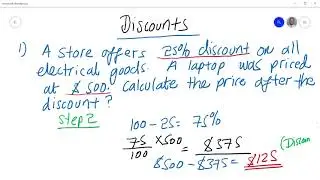 Discounts
1) A store offers 25% discount on all
electrical goods. A laptop was priced
at $500. Calculate the price after the
discount?
step 2
100-25= 75%
75/100 x500 = $375 (Discoun
$500-$375= $125